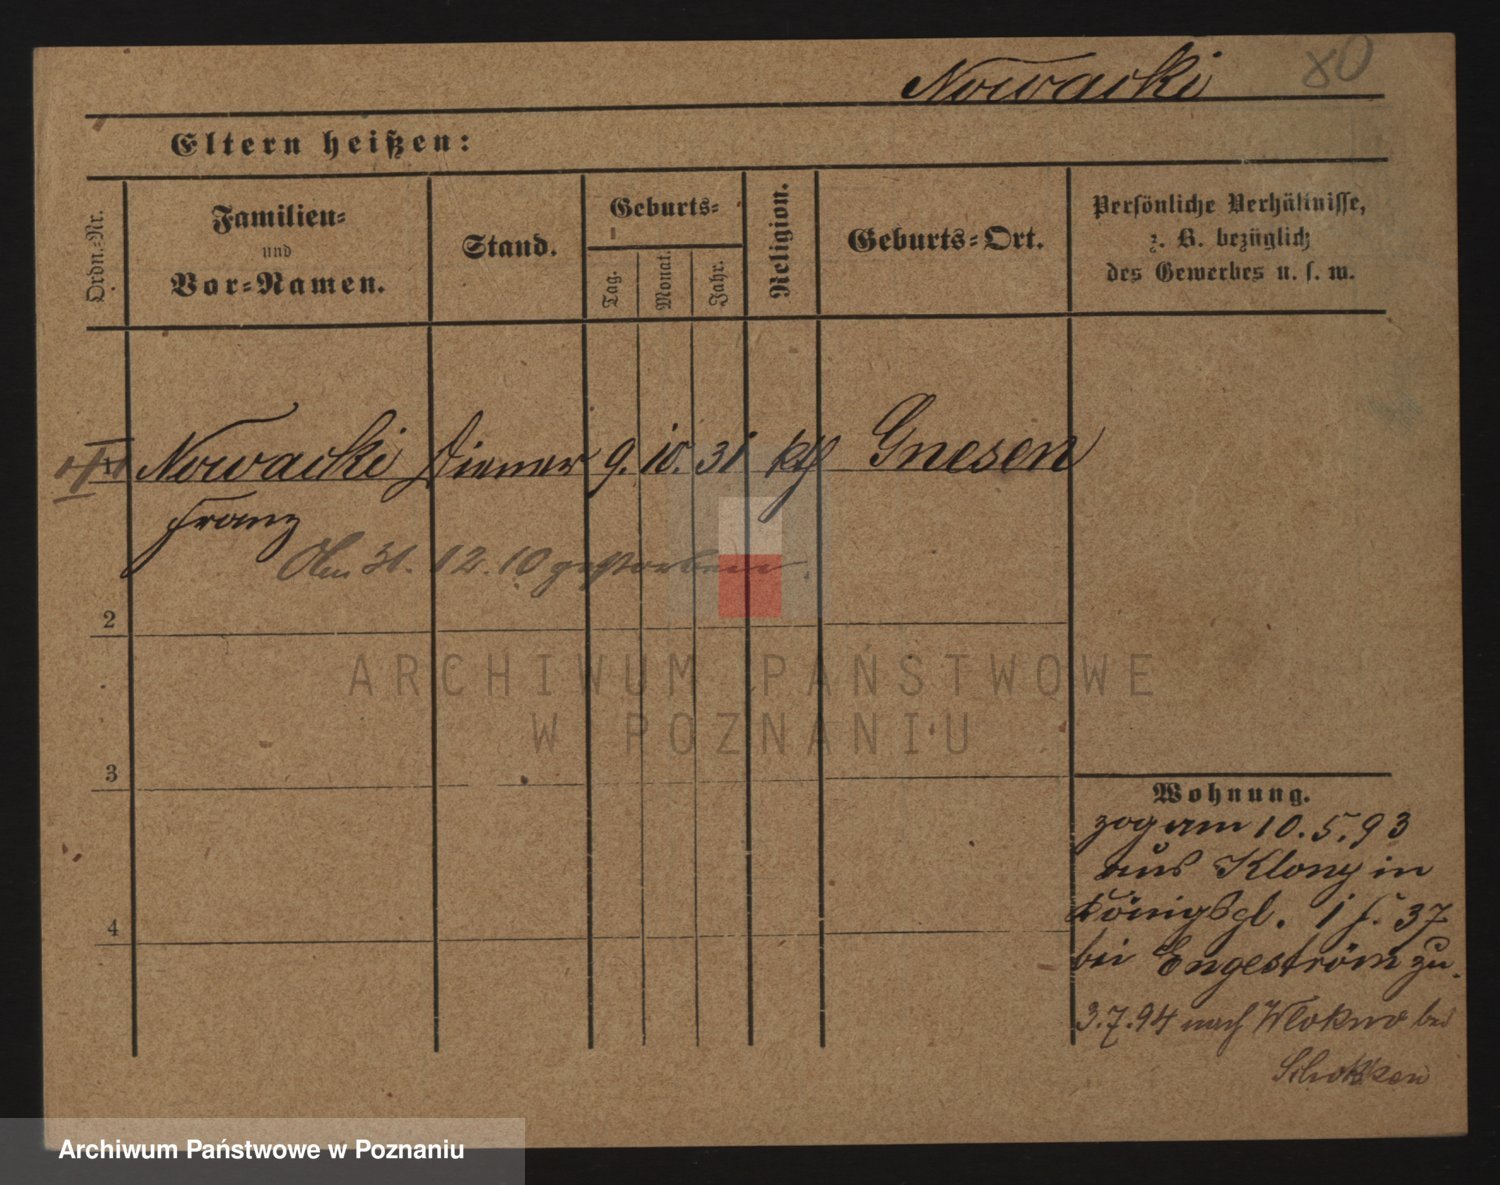 Nowacki 80
Eltern heißen:
Ordn.-Nr.
Familien-
und
Vor-Namen.
Stand.
Geburts-
Tag.
Monat.
Jahr.
Religion.
Geburts-Ort.
Persönliche Verhältnisse,
z. B. bezüglich
des Gewerbes u. s. w.
Nowacki Diener 9. 10. 31 kth Gnesen
Franz
Am 31. 12. 10 gestorben.
2
ARCHIWUM PAŃSTWOWE
W POZNANIU
3
4
Wohnung.
zog am 10.5.93
aus Klony in
Königspl. 37
bei Engeström zu.
3.7.94 nach Wlokno bei
Schokken
Archiwum Państwowe w Poznaniu